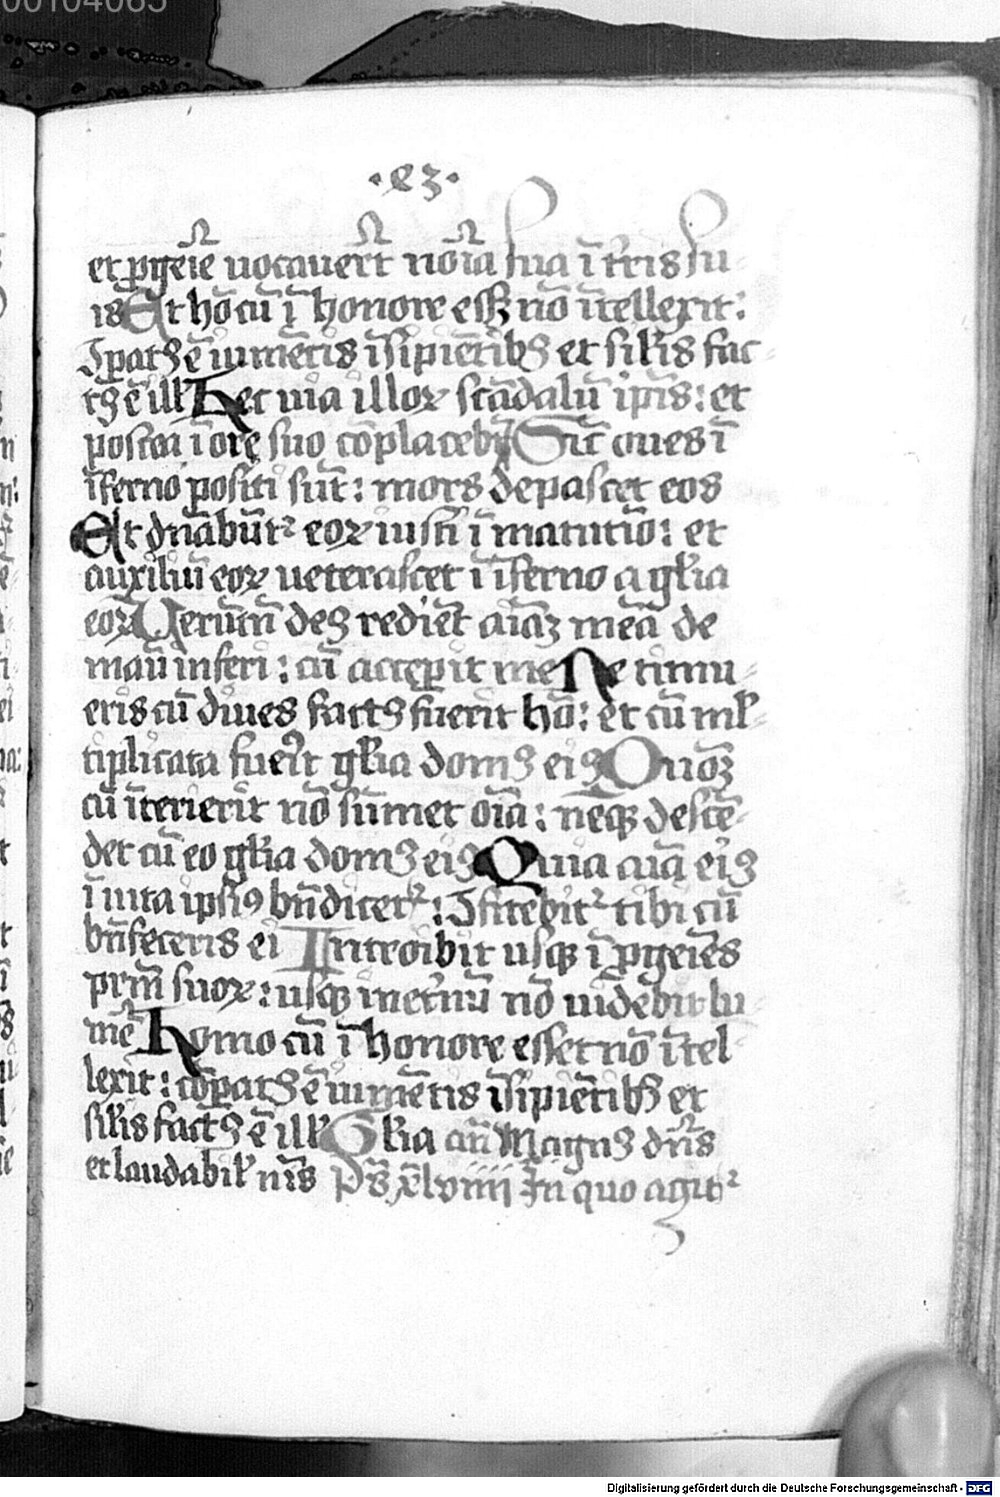 00104065
·e3·
et ꝓgeīe uocauer̄t nōīa sua ī tr̄ris su-
is Et hō cū ī honore eſſꝫ nō ītellexit:
ꝯpatꝰ ē iumētis īsipiētibꝰ et silīs fac-
tꝰ ē ill̄ Hec uia illoꝝ scādalū ip̄is: et
postea ī ore suo cōplacebūt Sic̄ oues ī
īferno positi sūt: mors depascet eos
Et dn̄abūtᷣ eoꝝ iusti ī matutīo: et
auxiliū eoꝝ ueterascet ī īferno a gl̄ia
eoꝝ Uerūtn̄ deꝰ redīet aīaꝫ meā de
māu inferi: cū acceꝑit me Ne timu-
eris cū diues factꝰ fuerit hō: et cū ml̄-
tiplicata fuer̄it gl̄ia domꝰ eiꝰ Quōꝫ
cū īterierit nō sūmet oīa: neqꝫ descē-
det cū eo gl̄ia domꝰ eiꝰ Quia aīa eiꝰ
ī uita ipsiꝰ bn̄dicetᷣ: ꝯfitebitᷣ tibi cū
bn̄feceris ei Introibit usqꝫ ī ꝓgeīes
pr̄m̄ suoꝝ: usqꝫ inet̄nū nō uidebit lu-
mē Homo cū ī honore esset nō ītel-
lexit: cōpatꝰ ē iumētis īsipiētibꝰ et
silīs factꝰ ē ill̄ Gl̄ia an̄ Magnꝰ dn̄s
et laudabil̄ nīs Ps̄ xlviiii In quo agitᷣ
Digitalisierung gefördert durch die Deutsche Forschungsgemeinschaft - DFG